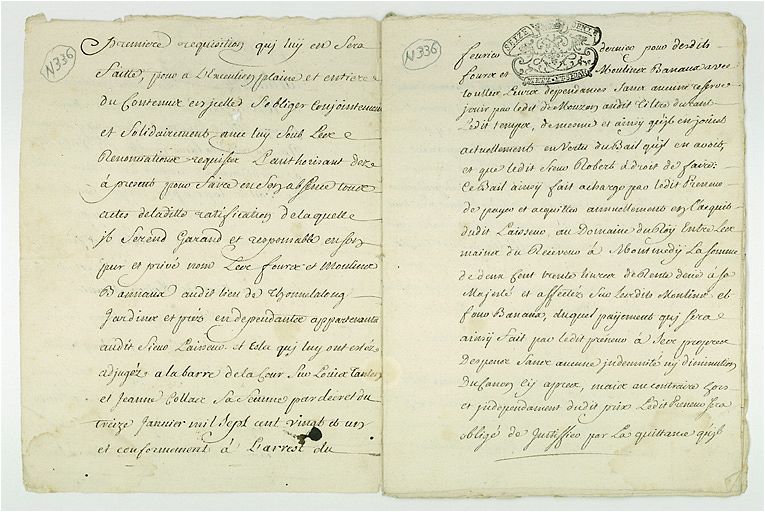 N336
Premiere requisition quj luy en sera
faitte, pour a L'Execution plaine et entiere
du Contenu en jcelles s'obliger Conjointement
et Solidairement avec luy Sous Les
Renonciations requises L'authorisant dez
à present pour faire en son absence tous
actes de laditte ratification de laquelle
jl Serend Garand et responsable en son
pur et privé nom Les fours et Moulins
Bannaux audit lieu de Thonnelalong
Jardins et prez en dependants appartenants
audit Sieur Laisseur et tels quj luy ont estéz
adjugéz a la barre de la Cour Sur Louis
et Jeanne Collar Sa femme par decret du
treize Janvier mil Sept cent vingt et un
et conformement à L'arrest du
N336
SEIZE DENIE
METZ
fevrier dernier pour desdits
fours et Moulins Banaux avec
touttes Leurs dependances Sans aucune reserve
jouir par ledit de Mouzon audit tiltre durant
Ledit temps, de mesme et ainsy qu'jl en jouit
actuellement en Vertu du Bail qu'jl en avoit
et que ledit Sieur Robert a droit de faire;
Ce Bail ainsy fait a charge par ledit Preneur
de payer et acquitter annuellement en l'acquit
dudit Laisseur, au Domaine du Roy Entre Les
mains du Receveur à Montmedÿ La somme
de deux Cent trente livres de Rente deüe à Sa
Majesté et affectéz Sur lesdits Moulins et
four Banaux, duquel payement quj sera
ainsy fait par ledit preneur à Ses propres
despens Sans aucune jndemnité ny diminution
du Canon Cy apres, mais au contraire hors
et jndependament dudit prix Ledit Preneur sera
obligé de Justiffier par La quittance qu'jl